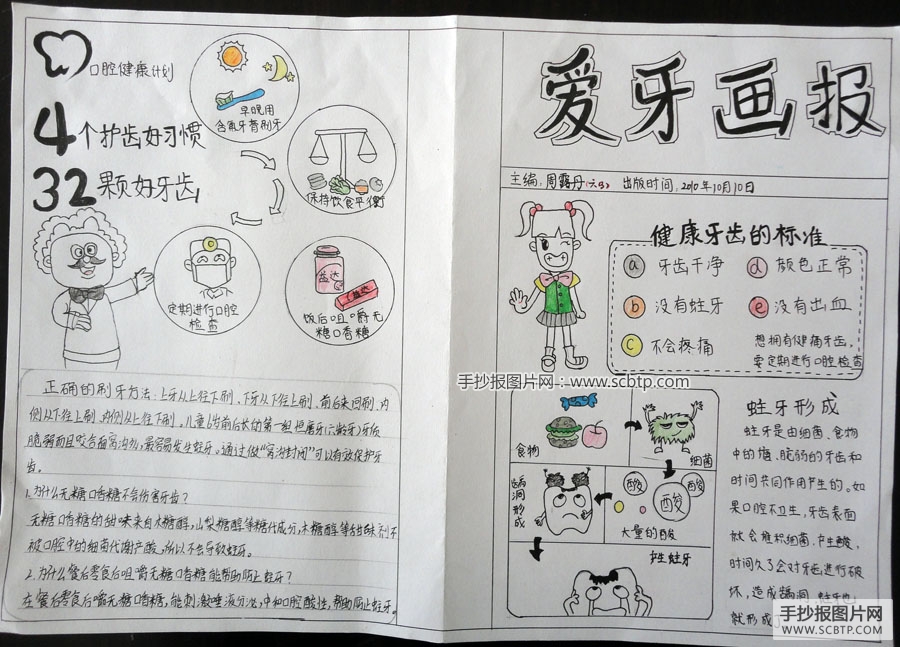 口腔健康计划
4个护齿好习惯
32颗好牙齿
早晚用
含氟牙膏刷牙
保持饮食平衡
定期进行口腔
检查
益达
益达
饭后咀嚼无
糖口香糖
正确的刷牙方法:上牙从上往下刷,下牙从下往上刷,前后来回刷,内
侧从下往上刷,内侧从上往下刷。儿童6岁前后长的第一组恒磨牙(六龄牙)牙冠
脆弱而且咬合面窝沟多,最容易发生蛀牙。通过做“窝沟封闭”可以有效保护牙
齿。
1.为什么无糖口香糖不会伤害牙齿?
无糖口香糖的甜味来自木糖醇,山梨糖醇等糖代成分,木糖醇等甜味剂不
被口腔中的细菌代谢产酸,所以不会导致蛀牙。
2.为什么餐后零食后咀嚼无糖口香糖能帮助防止蛀牙?
在餐后零食后嚼无糖口香糖,能刺激唾液分泌,中和口腔酸性,帮助防止蛀牙。
爱牙画报
主编:周露丹(六3) 出版时间:2010年10月10日
健康牙齿的标准
a 牙齿干净
d 颜色正常
b 没有蛀牙
e 没有出血
c 不会疼痛
想拥有健康牙齿,
要定期进行口腔检查
手抄报图片网:www.scbtp.com
食物
细菌
龋洞形成
酸
酸
酸
大量的酸
产生蛀牙
蛀牙形成
蛀牙是由细菌、食物
中的糖、脆弱的牙齿和
时间共同作用产生的。如
果口腔不卫生,牙齿表面
就会堆积细菌、产生酸,
时间久了会对牙齿进行破
坏,造成龋洞,蛀牙也
就形成
手抄报图片网
WWW.SCBTP.COM